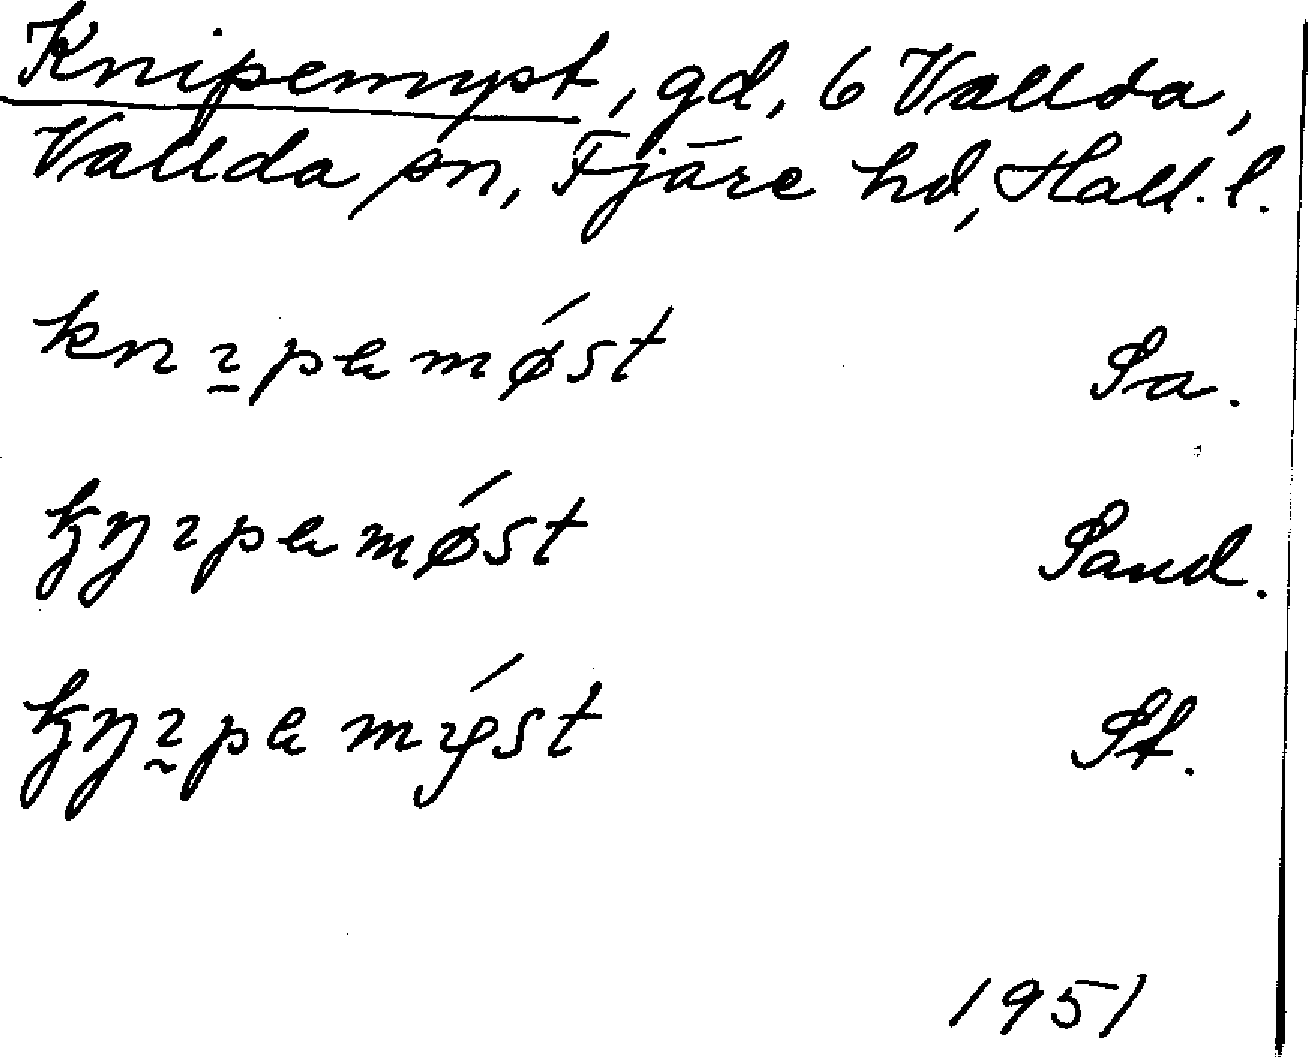 Knipemyst, gd, 6 Vallda,
Vallda sn, Fjäre hd, Hall. l.
knɿ̱pemǿst Sa.
knɿpemǿst Sand.
knɿ̰pemýst St.
1951